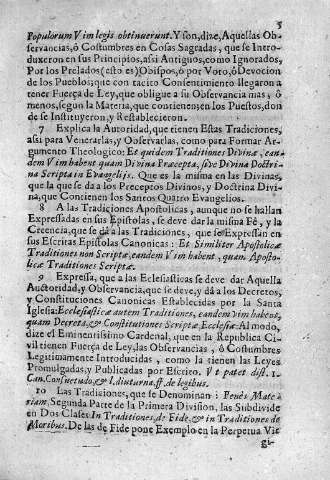 5
Populorum Vim legis obtinuerunt. Y son, dize, Aquellas Ob-
servancias, ò Costumbres en Cosas Sagradas, que se Intro-
duxeron en sus Principios, assi Antiguos, como Ignorados,
Por los Prelados (esto es) Obispos, ò por Voto, ò Devocion
de los Pueblos; que con tacito Consentimiento llegaron a
tener Fuerça de Ley, que obligue a su Observancia mas, ò
menos, segun la Materia, que contienen; en los Puestos, don
de se Instituyeron, y Restablecieron.
7 Explica la Autoridad, que tienen Estas Tradiciones,
assi para Venerarlas, y Observarlas, como para Formar Ar-
gumento Theologico: Et quidem Traditiones Divinæ, ean-
dem Vim habent quam Divina Præcepta, sive Divina Doctri-
na Scripta in Evangelijs. Que es la misma en las Divinas,
que la que se dà a los Preceptos Divinos, y Doctrina Divi-
na, que Contienen los Santos Quatro Evangelios.
8 A las Tradiciones Apostolicas, aunque no se hallan
Expressadas en sus Epistolas, se deve dar la misma Fè, y la
Creencia, que se dà a las Tradiciones, que se Expressan en
sus Escritas Epistolas Canonicas: Et Similiter Apostolicæ
Traditiones non Scriptæ, eandem Vim habent, quam Aposto-
licæ Traditiones Scriptæ.
9 Expressa, que a las Eclesiasticas se deve dar Aquella
Auctoridad, y Observancia, que se deve, y dà a los Decretos,
y Constituciones Canonicas Establecidas por la Santa
Iglesia: Ecclesiasticæ autem Traditiones, eandem vim habent,
quam Decreta, & Constitutiones Scriptæ Ecclesiæ. Al modo,
dize el Eminentissimo Cardenal, que en la Republica Ci-
vil tienen Fuerça de Ley, las Observancias, ò Costumbres
Legitimamente Introducidas, como la tienen las Leyes
Promulgadas, y Publicadas por Escrito. Vt patet dist. 1.
Can. Consuetudo, & l. diuturna, ff. de legibus.
10 Las Tradiciones, que se Denominan: Penès Mate
riam, Segunda Parte de la Primera Division, las Subdivide
en Dos Clases In Traditiones, de Fide, & in Traditiones de
Moribus. De las de Fide pone Exemplo en la Perpetua Vir
gi-